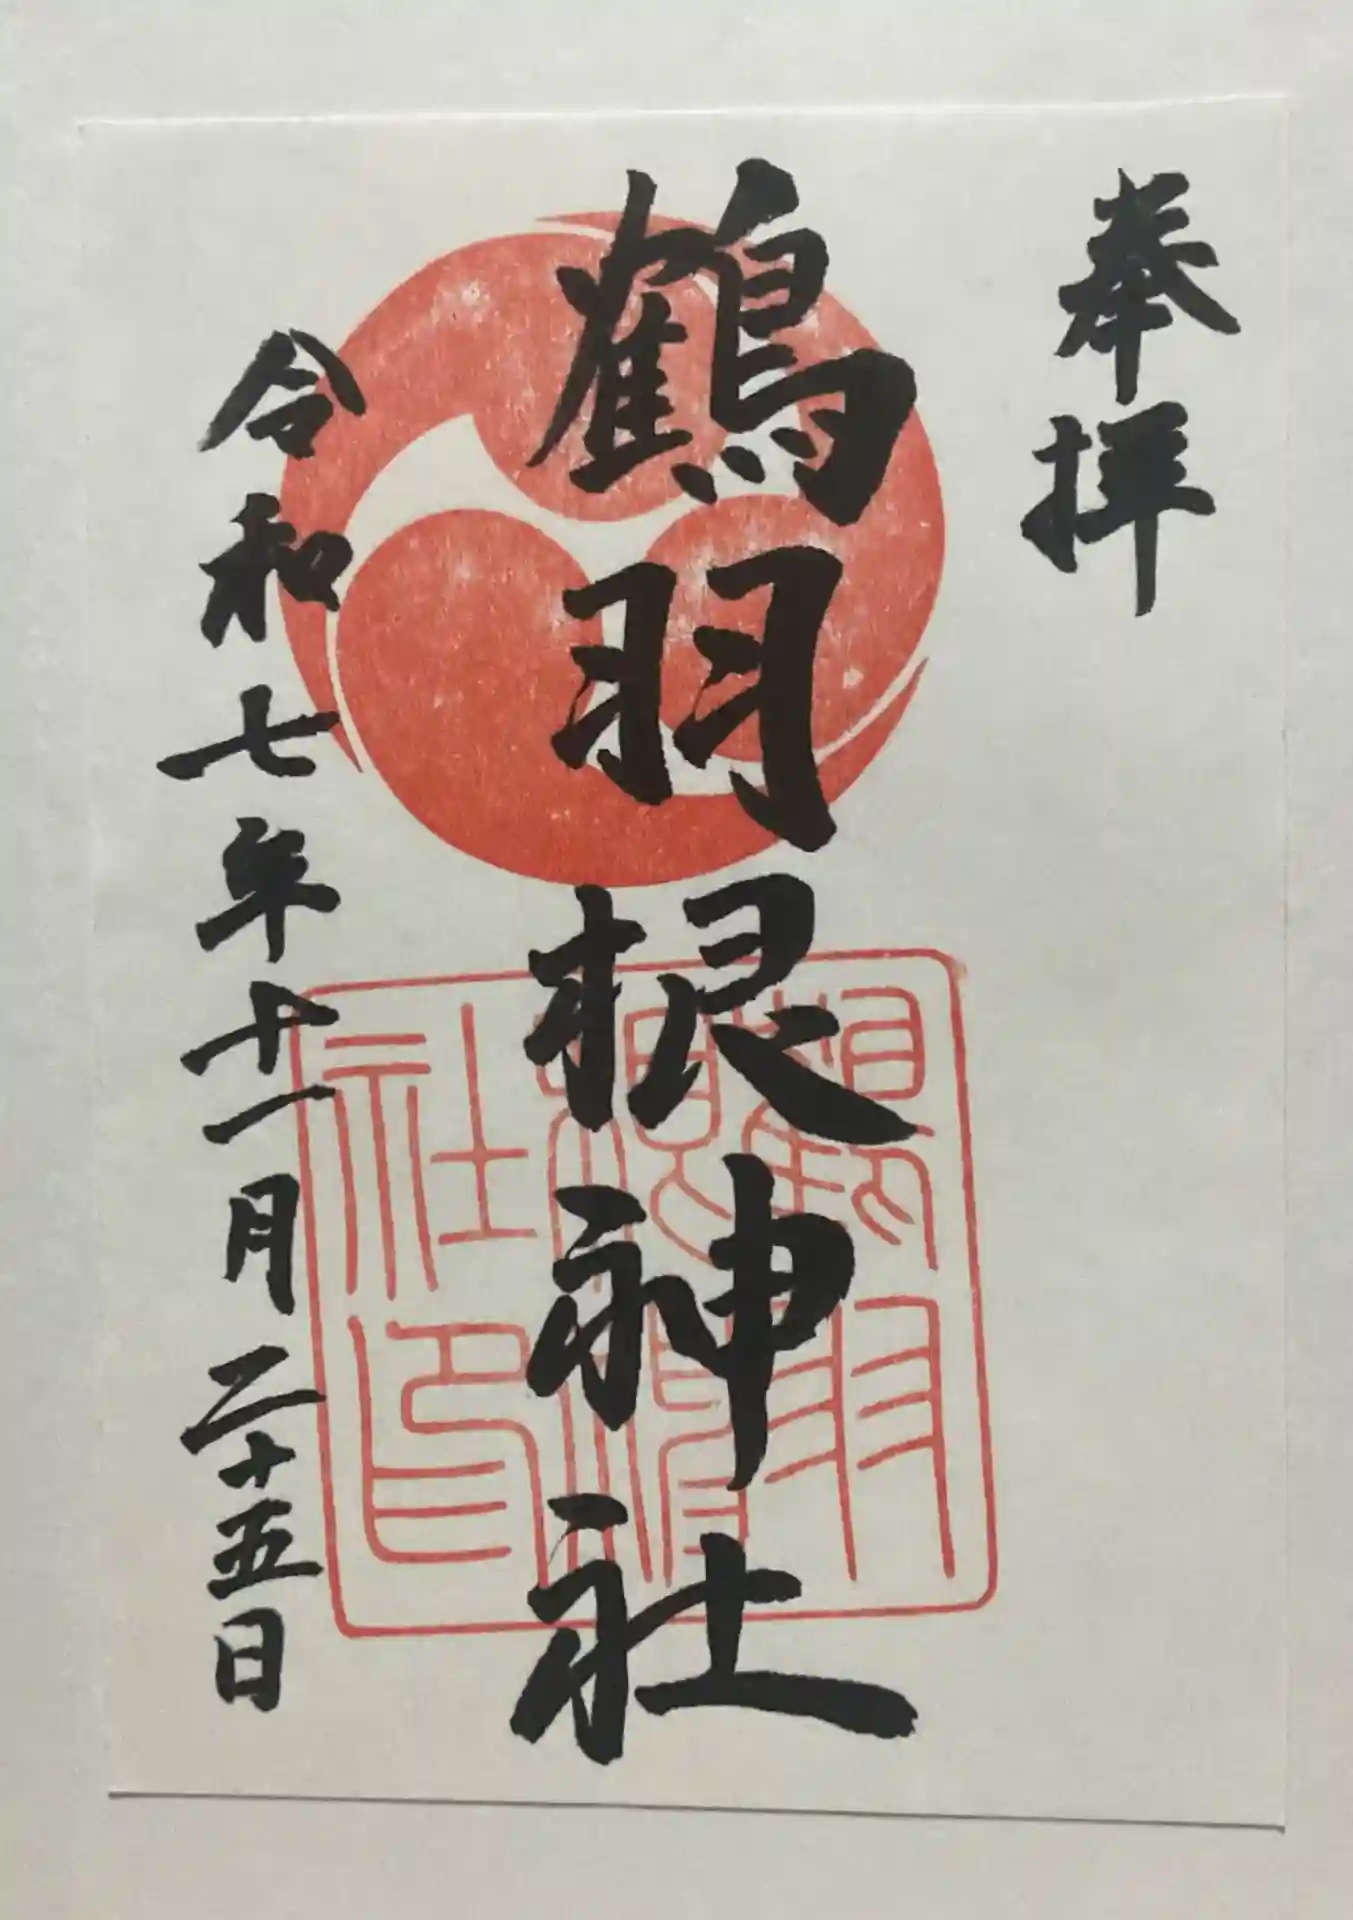 奉拝
鶴羽根神社
令和七年十一月二十五日
鶴羽
根神
社印